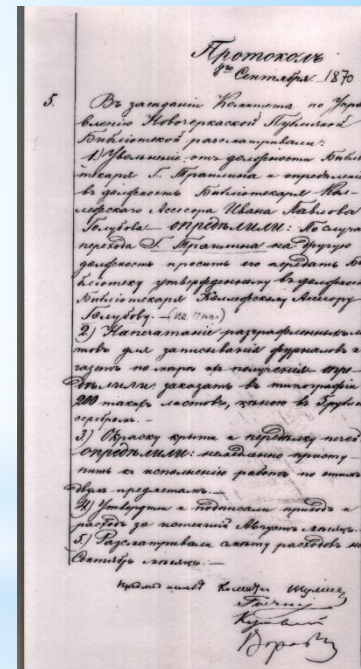 Протоколъ
8го Сентября 1870
5. Въ заседанiи Комитета по Упра
вленiю Новочеркаской Публичной
Библiотекой разсматривали:
1) Увольненiе отъ должности Библiо
текаря Г. Трапилина и определенiе
въ должность Библiотекаря Кол
лежского Асесора Ивана Павлова
Голубова – опредѣлили: По случаю
перехода Г. Трапилина на другую
должность просить его передать Би
блiотеку утвержденному въ должност
Библiотекаря Коллежскому Асесору
Голубову. –
2) Напечатанiе разграфленныхъ
товъ для записыванiя журналовъ и
газетъ по мере ихъ полученiя опре
дѣлили заказать въ типографiи
200 такихъ листовъ, ценою въ 5 рубле
серебромъ. –
3) Окраску крыши и переделку печей
опредѣлили: немедленно присту
пить къ исполненiю работъ по этимъ
двумъ предметамъ. –
4) Утвердили и подписали приходъ и
расходъ за истекшiй Августъ месяцъ.
5) Разсматривали смету расходовъ на
Сентябрь месяцъ. –